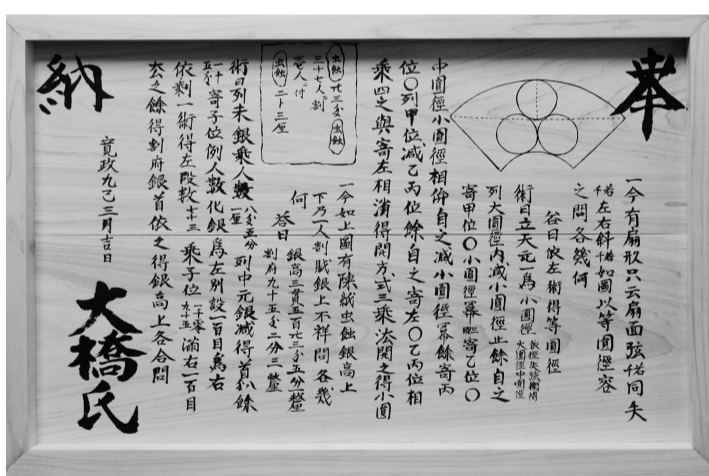 奉
一今有扇形只云扇面弦若干同矢
若干左右斜若干如圖以等圓徑容
之問各幾何
答曰依左術得等圓徑
術曰立天元一為小圓徑
列大圓徑内減小圓徑止餘自之
寄甲位〇小圓徑冪 寄乙位〇
中圓徑小圓徑相併自之減小圓徑冪餘寄丙
位〇列甲位減乙丙位餘自之寄左〇乙丙位相
乘四之與寄左相消得開方式三乘法開之得小圓
虫蝕 虫蝕
三十七人割
虫蝕 二卜三厘
一今如上圖有陳紙虫蝕銀高上
下乃一人割賦銀上不祥問各幾
何
答曰
銀高三貫五百 五分一釐
割府九十五 二分三釐
術曰列末銀乘人數 八 五分一厘 列中元銀減得首 餘
寄子位例人數化銀為左別設一百目為右
依剩一術得左段數 乘子位 滿右一百目
去之餘得割府銀首依之得銀高上各合問
寛政九乙三月吉日
大橋氏
納